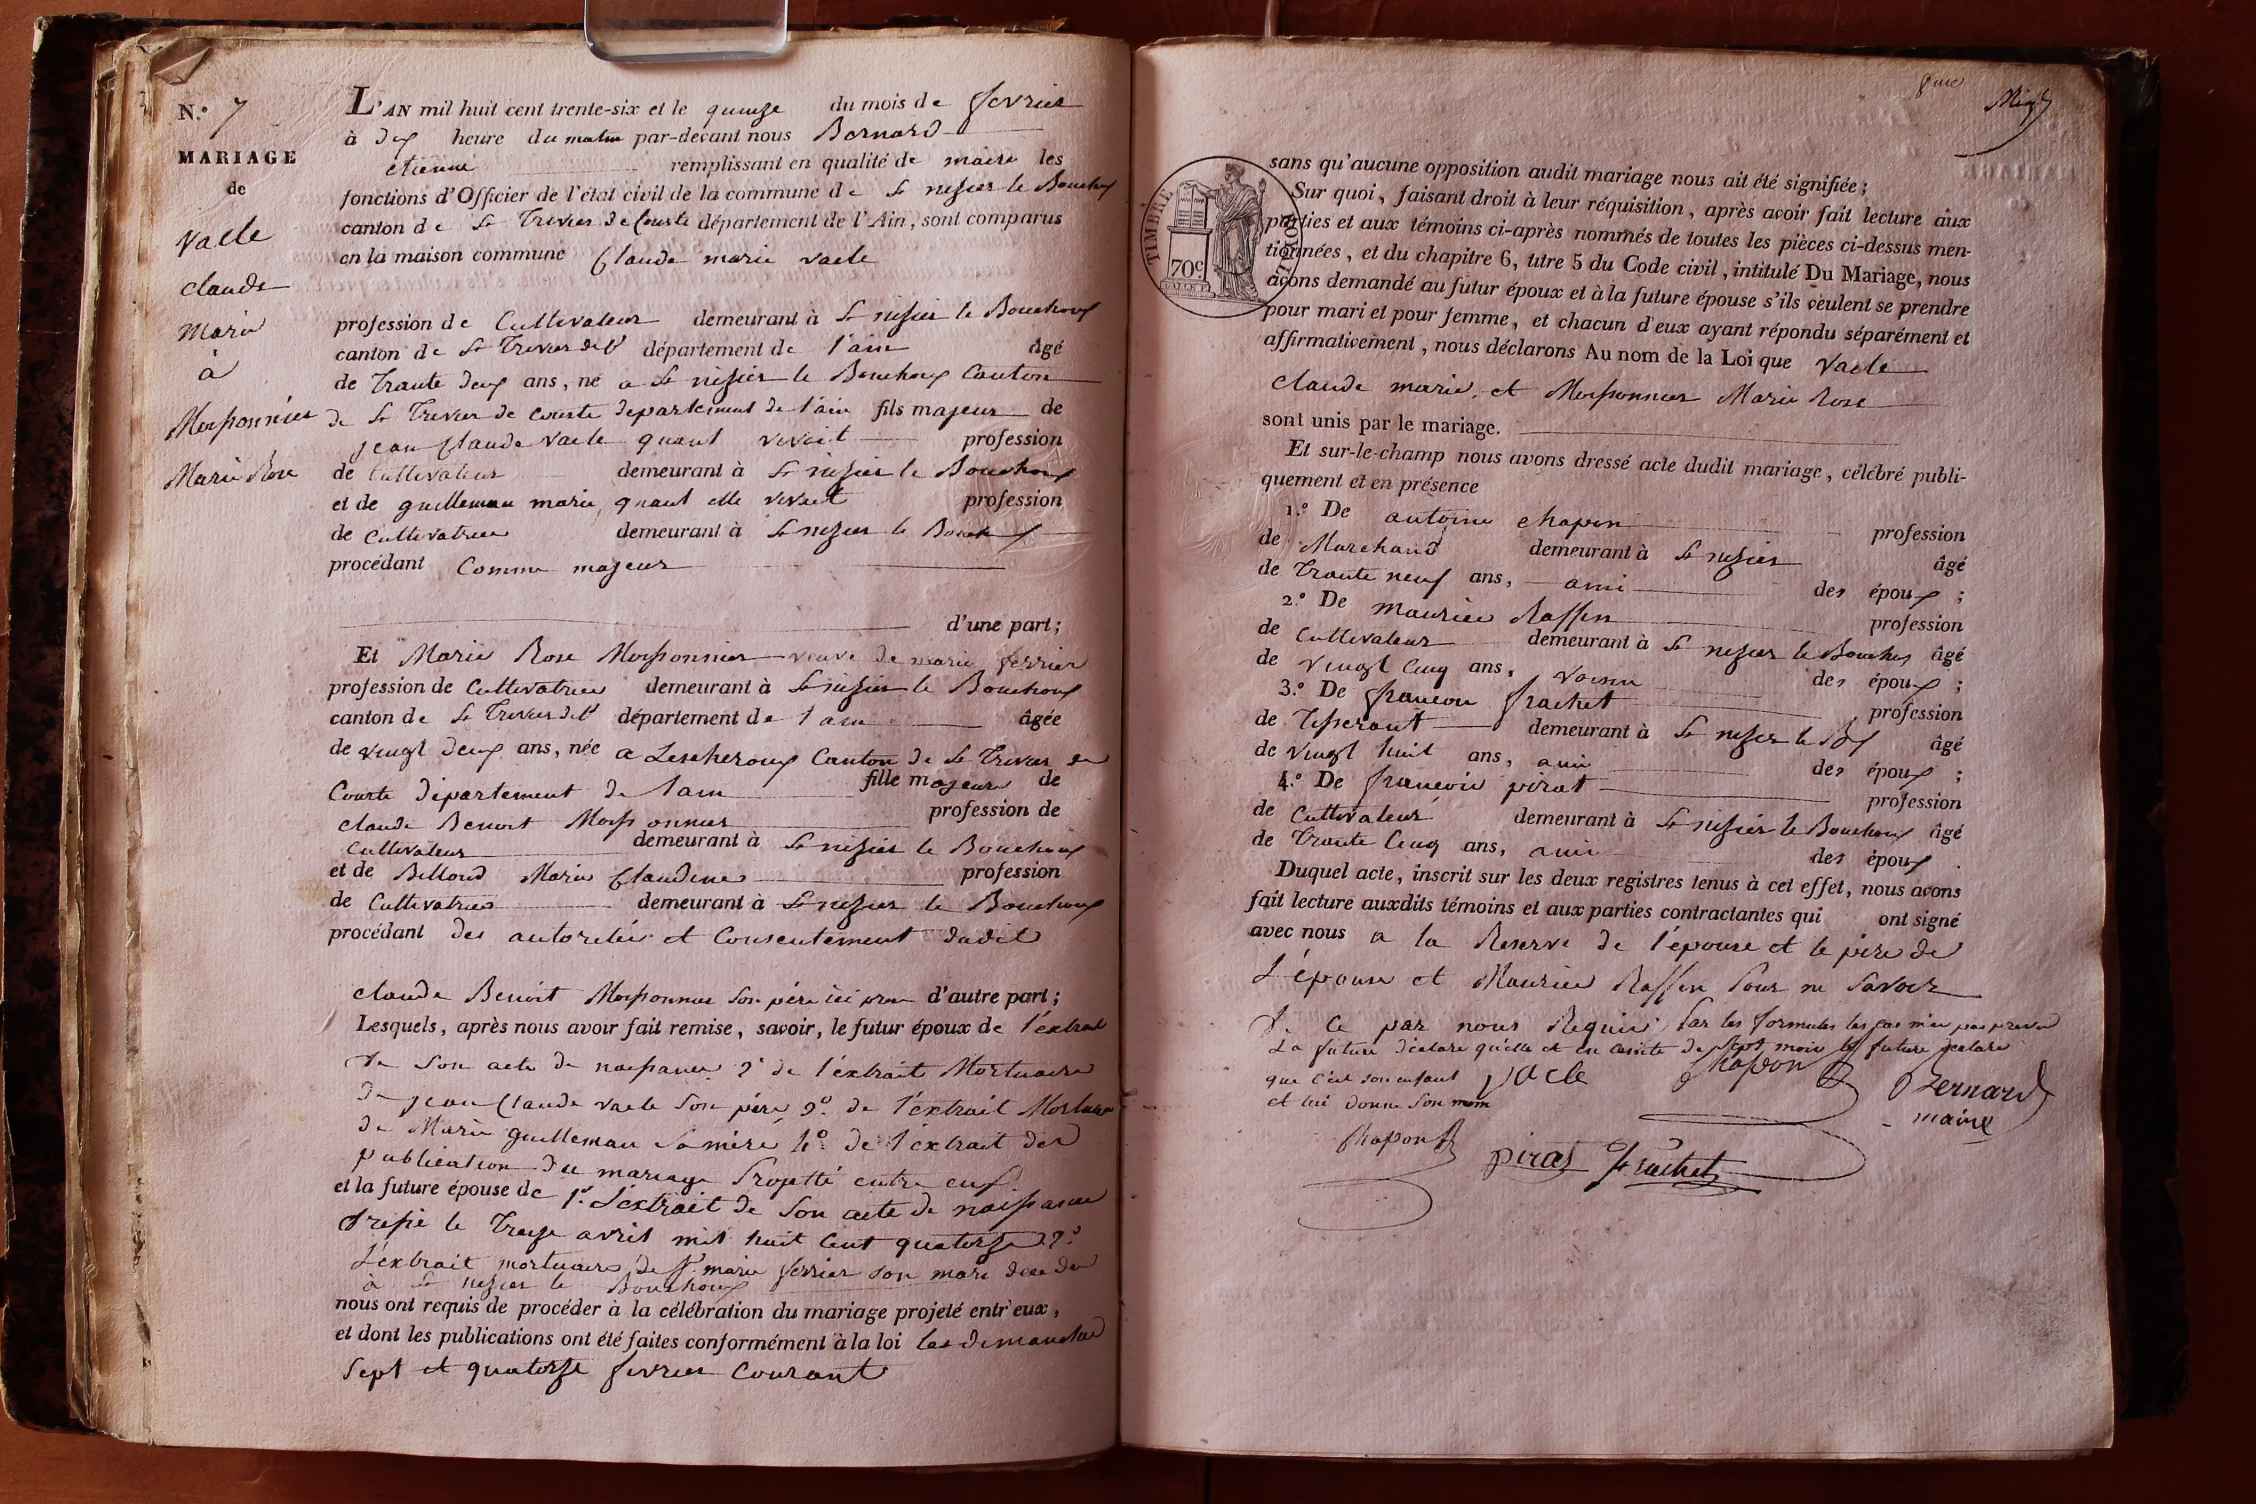 N.º 7
MARIAGE
de
Vacle
claude
Marie
à
Moissonnier
Marie Rose
L'AN mil huit cent trente-six et le quinze du mois de fevrier
à dix heure du matin par-devant nous Bernard
etienne remplissant en qualité de maire les
fonctions d'Officier de l'état civil de la commune de St nizier le Bouchoux
canton de St Trivier de Courte département de l'Ain, sont comparus
en la maison commune Claude marie vacle
profession de Cultivateur demeurant à St nizier le Bouchoux
canton de St Trivier de Ct département de l'ain âgé
de Trante deux ans, né a St nizier le Bouchoux Canton
de St Trivier de Courte departement de l'ain fils majeur de
jean Claude vacle quant vivait profession
de Cultivateur demeurant à St nizier le Bouchoux
et de guilleman marie quant elle vivait profession
de Cultivatrice demeurant à St nizier le Bouchoux
procédant Comme majeur
d'une part;
Et Marie Rose Moissonnier veuve de marie ferrier
profession de Cultivatrice demeurant à St nizier le Bouchoux
canton de St Trivier de Ct département de l'ain âgée
de vingt deux ans, née a Lescheroux Canton de St Trivier de
Courte département de l'ain fille majeure de
claude Benoit Moissonnier profession de
Cultivateur demeurant à St nizier le Bouchoux
et de Billoud Marie Claudine profession
de Cultivatrice demeurant à St nizier le Bouchoux
procédant des autorités et Consentement dudit
claude Benoit Moissonnier son père ici d'autre part;
Lesquels, après nous avoir fait remise, savoir, le futur époux de l'extrait
de son acte de naissance 2º de l'extrait Mortuaire
de jean Claude vacle son père 3º. de l'extrait Mortuaire
de Marie guilleman sa mère 4º. de l'extrait des
publication du mariage Projetté entre eux
et la future épouse de 1º. L'extrait de son acte de naissance
Dressé le Treize avril mil huit Cent quatorze 2º.
L'extrait mortuaire de marie ferrier son mari decedé
à St nizier le Bouchoux
nous ont requis de procéder à la célébration du mariage projeté entr'eux,
et dont les publications ont été faites conformément à la loi les dimanches
sept et quatorze fevrier Courant
TIMBRE ROYAL
70c.
sans qu'aucune opposition audit mariage nous ait été signifiée;
Sur quoi, faisant droit à leur réquisition, après avoir fait lecture aux
parties et aux témoins ci-après nommés de toutes les pièces ci-dessus men-
tionnées, et du chapitre 6, titre 5 du Code civil, intitulé Du Mariage, nous
avons demandé au futur époux et à la future épouse s'ils veulent se prendre
pour mari et pour femme, et chacun d'eux ayant répondu séparément et
affirmativement, nous déclarons Au nom de la Loi que Vacle
claude marie. et Moissonnier Marie Rose
sont unis par le mariage.
Et sur-le-champ nous avons dressé acte dudit mariage, célébré publi-
quement et en présence
1.º De antoine chapon profession
de Marchand demeurant à St nizier âgé
de Trante neuf ans, ami des époux;
2.º De maurice Raffin profession
de Cultivateur demeurant à St nizier le Bouchoux âgé
de vingt Cinq ans, voisin des époux;
3.º De francois frachet profession
de Tisserant demeurant à St nizier le Bx âgé
de vingt huit ans, ami des époux;
4.º De francois pirat profession
de Cultivateur demeurant à St nizier le Bouchoux âgé
de Trante Cinq ans, ami des époux.
Duquel acte, inscrit sur les deux registres tenus à cet effet, nous avons
fait lecture auxdits témoins et aux parties contractantes qui ont signé
avec nous a la Reserve de l'épouse et le père de
L'épouse et Maurice Raffin Pour ne savoir
de ce par nous Requis Par les formules
La future déclare qu'elle et en de sept mois le future declare
que c'est son enfant
et lui donne son nom
Vacle
Chapon
Bernard
maire
Chapon
pirat frachet